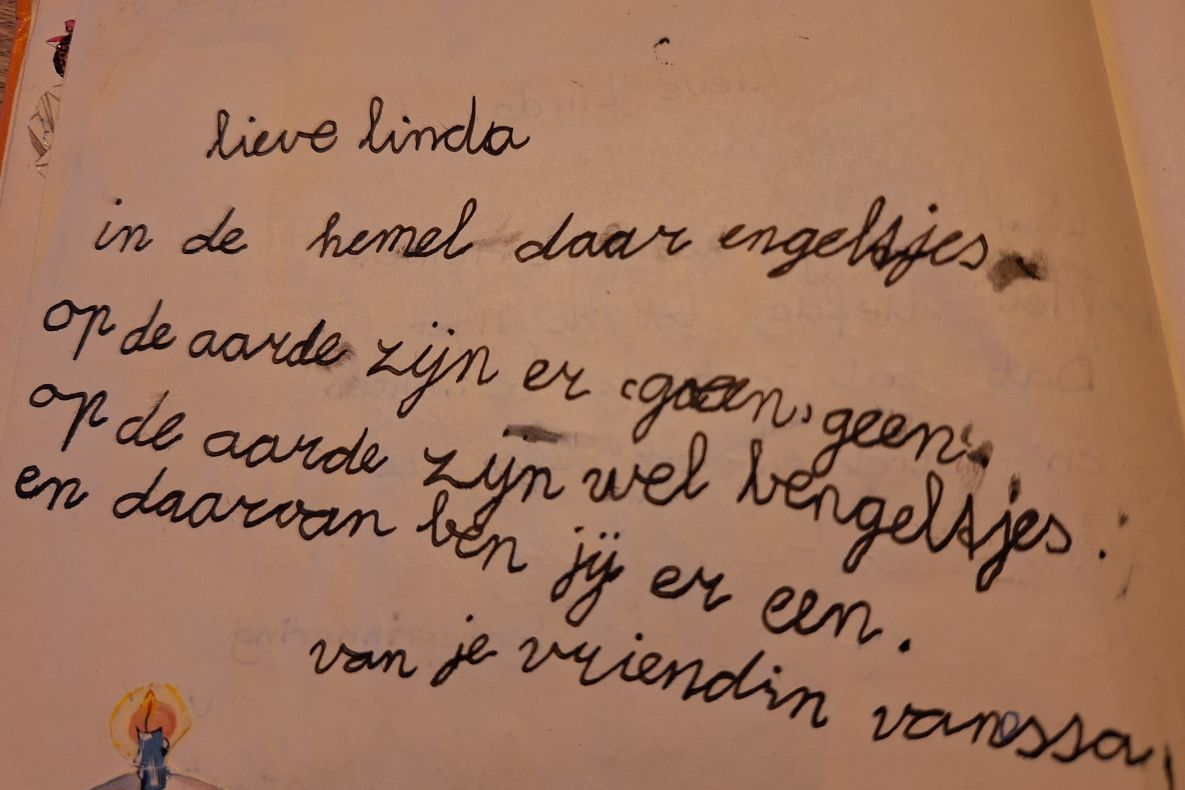 lieve linda
in de hemel daar engeltsjes
op de aarde zijn er geen, geen.
op de aarde zijn wel bengeltsjes.
en daarvan ben jij er een.
van je vriendin vanessa